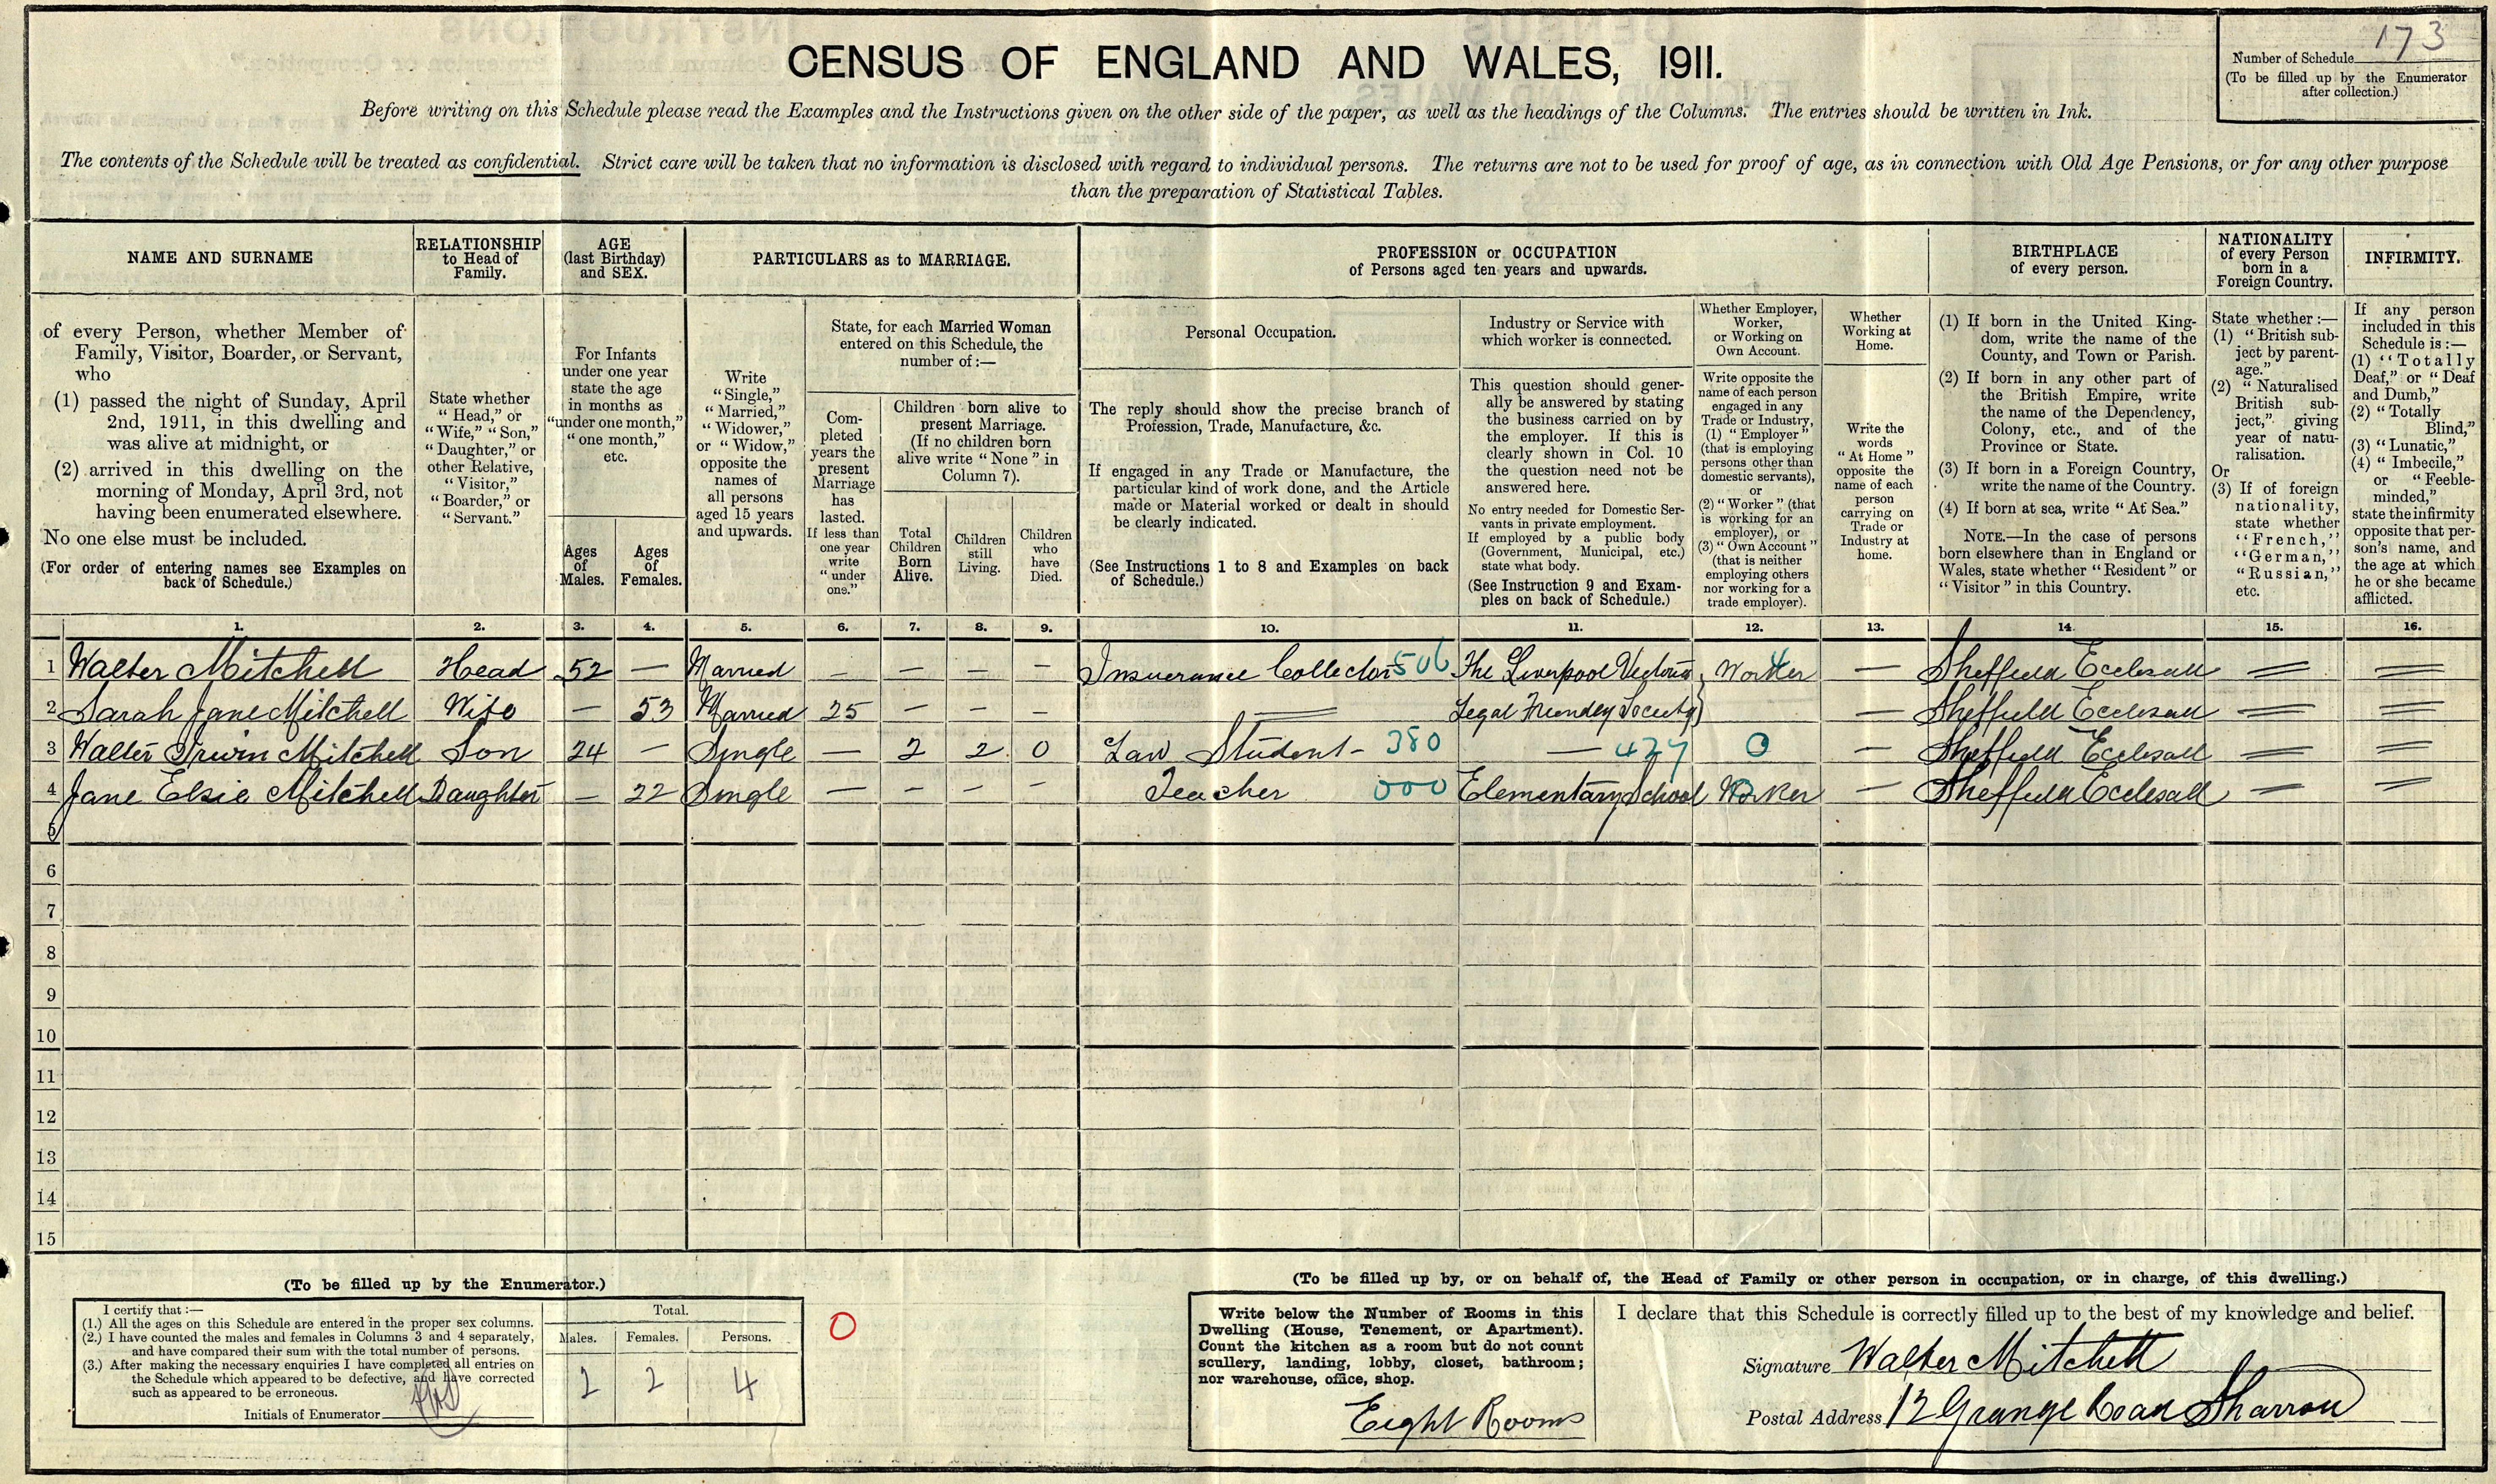 CENSUS OF ENGLAND AND WALES, 1911.
Number of Schedule 173
(To be filled up by the Enumerator
after collection.)
Before writing on this Schedule please read the Examples and the Instructions given on the other side of the paper, as well as the headings of the Columns. The entries should be written in Ink.
The contents of the Schedule will be treated as confidential. Strict care will be taken that no information is disclosed with regard to individual persons. The returns are not to be used for proof of age, as in connection with Old Age Pensions, or for any other purpose
than the preparation of Statistical Tables.
NAME AND SURNAME
of every Person, whether Member of
Family, Visitor, Boarder, or Servant,
who
(1) passed the night of Sunday, April
2nd, 1911, in this dwelling and
was alive at midnight, or
(2) arrived in this dwelling on the
morning of Monday, April 3rd, not
having been enumerated elsewhere.
No one else must be included.
(For order of entering names see Examples on
back of Schedule.)
RELATIONSHIP
to Head of
Family.
State whether
"Head," or
"Wife," "Son,"
"Daughter," or
other Relative,
"Visitor,"
"Boarder," or
"Servant."
AGE
(last Birthday)
and SEX.
For Infants
under one year
state the age
in months as
"under one month,"
"one month,"
etc.
Ages
of
Males.
Ages
of
Females.
PARTICULARS as to MARRIAGE.
Write
"Single,"
"Married,"
"Widower,"
or "Widow,"
opposite the
names of
all persons
aged 15 years
and upwards.
State, for each Married Woman
entered on this Schedule, the
number of:—
Com-
pleted
years the
present
Marriage
has
lasted.
If less than
one year
write
"under
one."
Children born alive to
present Marriage.
(If no children born
alive write "None" in
Column 7).
Total
Children
Born
Alive.
Children
still
Living.
Children
who
have
Died.
PROFESSION or OCCUPATION
of Persons aged ten years and upwards.
Personal Occupation.
The reply should show the precise branch of
Profession, Trade, Manufacture, &c.
If engaged in any Trade or Manufacture, the
particular kind of work done, and the Article
made or Material worked or dealt in should
be clearly indicated.
(See Instructions 1 to 8 and Examples on back
of Schedule.)
Industry or Service with
which worker is connected.
This question should gener-
ally be answered by stating
the business carried on by
the employer. If this is
clearly shown in Col. 10
the question need not be
answered here.
No entry needed for Domestic Ser-
vants in private employment.
If employed by a public body
(Government, Municipal, etc.)
state what body.
(See Instruction 9 and Exam-
ples on back of Schedule.)
Whether Employer,
Worker,
or Working on
Own Account.
Write opposite the
name of each person
engaged in any
Trade or Industry,
(1) "Employer"
(that is employing
persons other than
domestic servants),
or
(2) "Worker" (that
is working for an
employer), or
(3) "Own Account"
(that is neither
employing others
nor working for a
trade employer).
Whether
Working at
Home.
Write the
words
"At Home"
opposite the
name of each
person
carrying on
Trade or
Industry at
home.
BIRTHPLACE
of every person.
(1) If born in the United King-
dom, write the name of the
County, and Town or Parish.
(2) If born in any other part of
the British Empire, write
the name of the Dependency,
Colony, etc., and of the
Province or State.
(3) If born in a Foreign Country,
write the name of the Country.
(4) If born at sea, write "At Sea."
NOTE.—In the case of persons
born elsewhere than in England or
Wales, state whether "Resident" or
"Visitor" in this Country.
NATIONALITY
of every Person
born in a
Foreign Country.
State whether:—
(1) "British sub-
ject by parent-
age."
(2) "Naturalised
British sub-
ject," giving
year of natu-
ralisation.
Or
(3) If of foreign
nationality,
state whether
"French,"
"German,"
"Russian,"
etc.
INFIRMITY.
If any person
included in this
Schedule is:—
(1) "Totally
Deaf," or "Deaf
and Dumb,"
(2) "Totally
Blind,"
(3) "Lunatic,"
(4) "Imbecile,"
or "Feeble-
minded,"
state the infirmity
opposite that per-
son's name, and
the age at which
he or she became
afflicted.
1. 2. 3. 4. 5. 6. 7. 8. 9. 10. 11. 12. 13. 14. 15. 16.
1 Walter Mitchell Head 52 — Married — — — — Insurance Collector 506 The Liverpool Victoria Worker — Sheffield Ecclesall
2 Sarah Jane Mitchell Wife — 53 Married 25 — — — Legal Friendly Society — Sheffield Ecclesall
3 Walter Irwin Mitchell Son 24 — Single — 2 2 0 Law Student - 380 — 427 0 — Sheffield Ecclesall
4 Jane Elsie Mitchell Daughter — 22 Single — — — — Teacher 000 Elementary School Worker — Sheffield Ecclesall
5
6
7
8
9
10
11
12
13
14
15
(To be filled up by the Enumerator.)
I certify that:—
(1.) All the ages on this Schedule are entered in the proper sex columns.
(2.) I have counted the males and females in Columns 3 and 4 separately,
and have compared their sum with the total number of persons.
(3.) After making the necessary enquiries I have completed all entries on
the Schedule which appeared to be defective, and have corrected
such as appeared to be erroneous.
Initials of Enumerator
Total.
Males. Females. Persons.
2 2 4
0
(To be filled up by, or on behalf of, the Head of Family or other person in occupation, or in charge, of this dwelling.)
Write below the Number of Rooms in this
Dwelling (House, Tenement, or Apartment).
Count the kitchen as a room but do not count
scullery, landing, lobby, closet, bathroom;
nor warehouse, office, shop.
Eight Rooms
I declare that this Schedule is correctly filled up to the best of my knowledge and belief.
Signature Walter Mitchell
Postal Address 12 Grange Road Sharrow